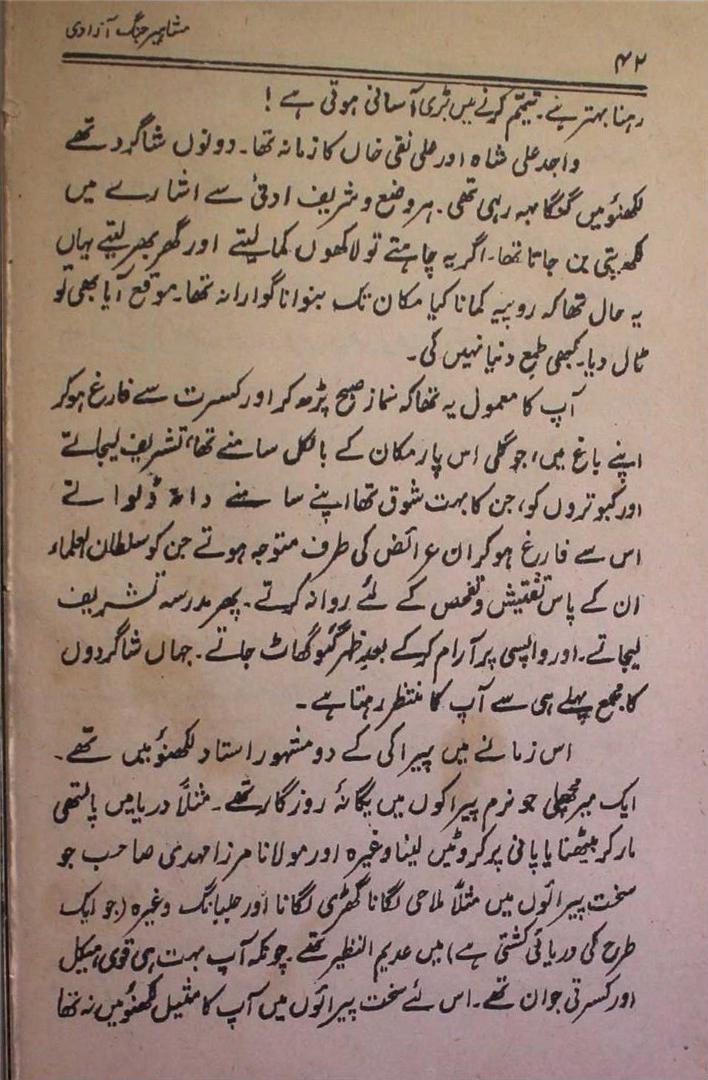 مشاہیر جنگ آزادی
۴۲
رہنا بہتر ہے۔ تیمم کرنے میں بڑی آسانی ہوتی ہے !
واجد علی شاہ اور علی نقی خاں کا زمانہ تھا۔ دونوں شاگرد تھے
لکھنؤ میں گنگا بہہ رہی تھی۔ ہر وضع و شریف ادنیٰ سے اشارے میں
لکھ پتی بن جاتا تھا۔ اگر یہ چاہتے تو لاکھوں کما لیتے اور گھر بھر لیتے یہاں
یہ حال تھا کہ روپیہ کمانا کیا مکان تک بنوانا گوارا نہ تھا۔ موقع آیا بھی تو
ٹال دیا۔ کبھی طمع دنیا نہیں کی۔
آپ کا معمول یہ تھا کہ نماز صبح پڑھ کر اور کسرت سے فارغ ہو کر
اپنے باغ میں، جو گلی اس پار مکان کے بالکل سامنے تھا، تشریف لیجاتے
اور کبوتروں کو، جن کا بہت شوق تھا اپنے سامنے دانہ ڈلواتے
اس سے فارغ ہو کر ان عرائض کی طرف متوجہ ہوتے جن کو سلطان العلماء
ان کے پاس تفتیش و تفحص کے لئے روانہ کرتے۔ پھر مدرسہ تشریف
لیجاتے۔ اور واپسی پر آرام کر کے بعد ظہر گئو گھاٹ جاتے۔ جہاں شاگردوں
کا مجمع پہلے ہی سے آپ کا منتظر رہتا ہے۔
اس زمانے میں پیراکی کے دو مشہور استاد لکھنؤ میں تھے۔
ایک میر مچھلی جو نرم پیراکوں میں یگانۂ روزگار تھے۔ مثلاً دریا میں پالتھی
مار کر بیٹھنا یا پانی پر کروٹیں لینا وغیرہ اور مولانا مرزا مہدی صاحب جو
سخت پیرائوں میں مثلاً ملاحی لگانا کھڑی لگانا اور جلبانگ وغیرہ (جو ایک
طرح کی دریائی کشتی ہے) میں عدیم النظیر تھے۔ چونکہ آپ بہت ہی قوی ہیکل
اور کسرتی جوان تھے۔ اس لئے سخت پیرائوں میں آپ کا مثیل لکھنؤ میں نہ تھا